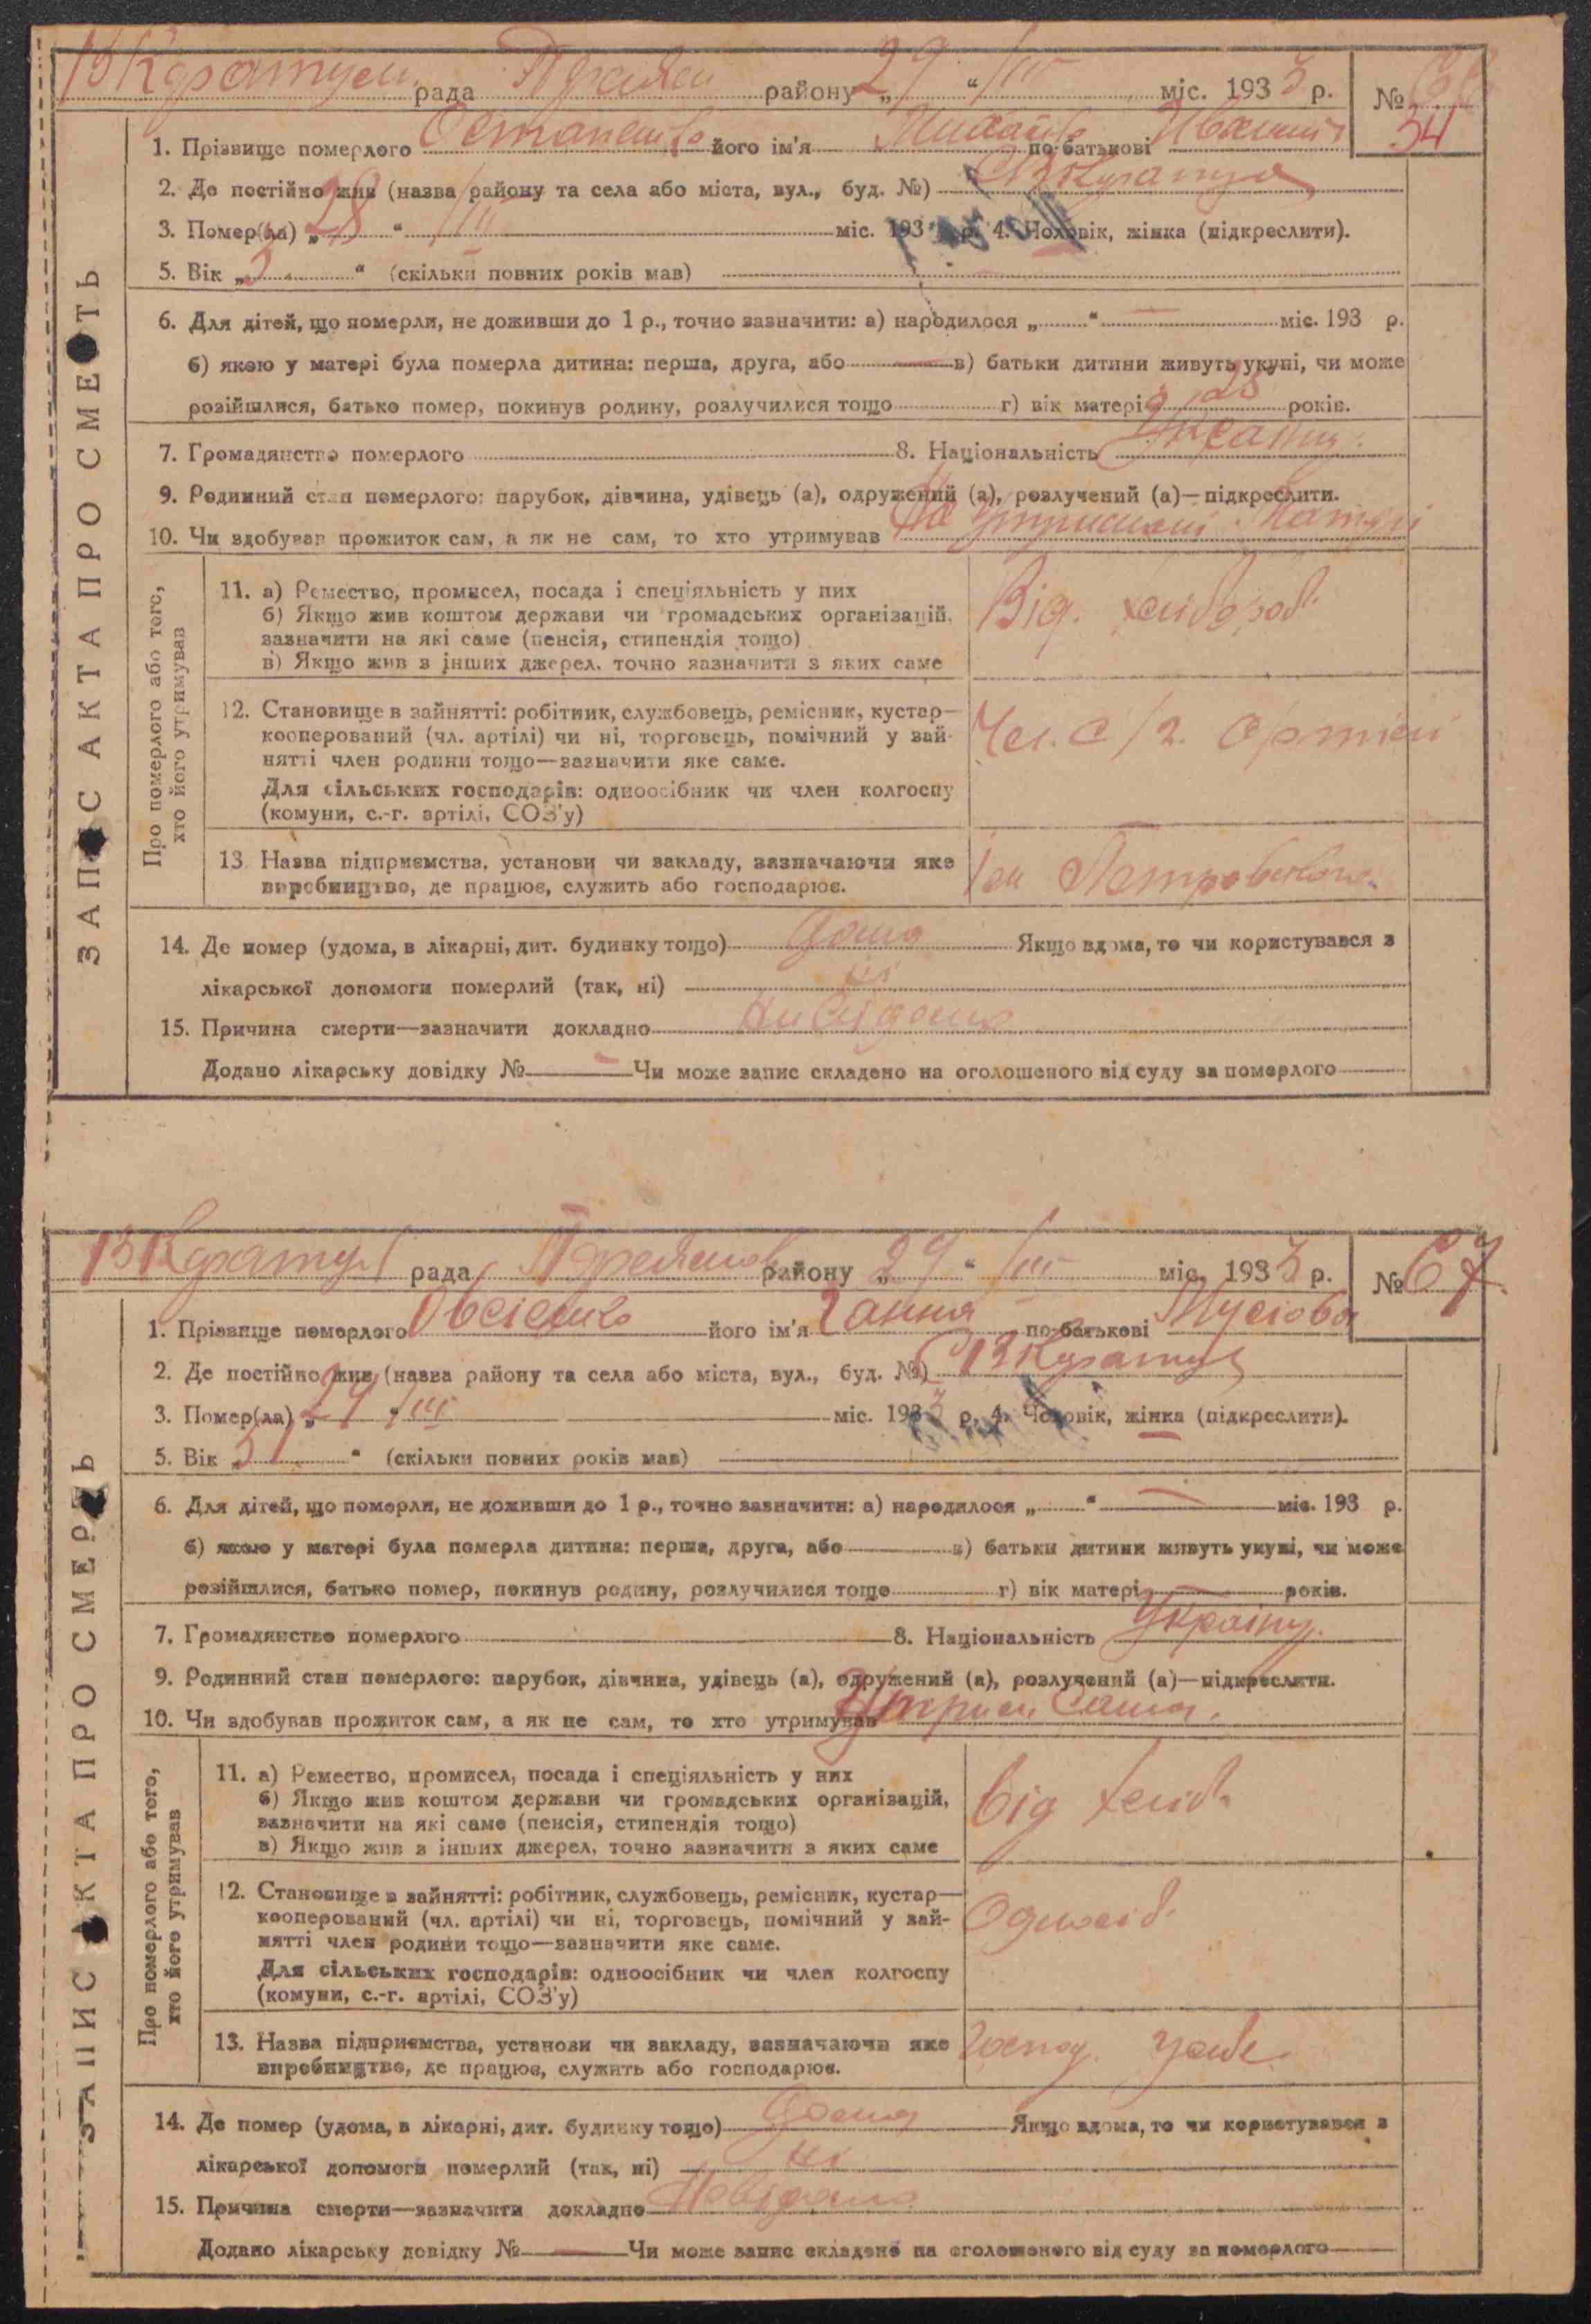 ЗАПИС АКТА ПРО СМЕРТЬ
рада району „29“ III міс. 1933 р. №
34
1. Прізвище померлого Остапенко його ім'я Михайло по-батькові Іванович
2. Де постійно жив (назва району та села або міста, вул., буд. №)
3. Помер(ла) „28“ III міс. 193 р. 4. Чоловік, жінка (підкреслити).
5. Вік „3“ (скільки повних років мав)
6. Для дітей, що померли, не доживши до 1 р., точно зазначити: а) народилося „ “ міс. 193 р.
б) якою у матері була померла дитина: перша, друга, або в) батьки дитини живуть укупі, чи може
розійшлися, батько помер, покинув родину, розлучилися тощо г) вік матері 28 років.
7. Громадянство померлого 8. Національність
9. Родинний стан померлого: парубок, дівчина, удівець (а), одружений (а), розлучений (а)—підкреслити.
10. Чи здобував прожиток сам, а як не сам, то хто утримував На утриманні матері
Про померлого або того,
хто його утримував
11. а) Ремество, промисел, посада і спеціяльність у них
б) Якщо жив коштом держави чи громадських організацій,
зазначити на які саме (пенсія, стипендія тощо)
в) Якщо жив з інших джерел, точно зазначити з яких саме
Від. хлібороб.
12. Становище в зайнятті: робітник, службовець, ремісник, кустар—
кооперований (чл. артілі) чи ні, торговець, помічний у зай-
нятті член родини тощо—зазначити яке саме.
Для сільських господарів: одноосібник чи член колгоспу
(комуни, с.-г. артілі, СОЗ'у)
Чл. С/Г. Артілі
13. Назва підприємства, установи чи закладу, зазначаючи яке
виробництво, де працює, служить або господарює.
Ім Петровського
14. Де помер (удома, в лікарні, дит. будинку тощо) дома Якщо вдома, то чи користувався з
лікарської допомоги померлий (так, ні) ні
15. Причина смерти—зазначити докладно
Додано лікарську довідку № Чи може запис складено на оголошеного від суду за померлого
ЗАПИС АКТА ПРО СМЕРТЬ
рада району „29“ III міс. 1933 р. № 67
1. Прізвище померлого Овсієнко його ім'я Ганна по-батькові Мусіовна
2. Де постійно жив (назва району та села або міста, вул., буд. №)
3. Помер(ла) „29“ III міс. 1933 р. 4. Чоловік, жінка (підкреслити).
5. Вік „ “ (скільки повних років мав)
6. Для дітей, що померли, не доживши до 1 р., точно зазначити: а) народилося „ “ міс. 193 р.
б) якою у матері була померла дитина: перша, друга, або в) батьки дитини живуть укупі, чи може
розійшлися, батько помер, покинув родину, розлучилися тощо г) вік матері років.
7. Громадянство померлого 8. Національність Україн.
9. Родинний стан померлого: парубок, дівчина, удівець (а), одружений (а), розлучений (а)—підкреслити.
10. Чи здобував прожиток сам, а як не сам, то хто утримував Утрим. Сама.
Про померлого або того,
хто його утримував
11. а) Ремество, промисел, посада і спеціяльність у них
б) Якщо жив коштом держави чи громадських організацій,
зазначити на які саме (пенсія, стипендія тощо)
в) Якщо жив з інших джерел, точно зазначити з яких саме
від хліб.
12. Становище в зайнятті: робітник, службовець, ремісник, кустар—
кооперований (чл. артілі) чи ні, торговець, помічний у зай-
нятті член родини тощо—зазначити яке саме.
Для сільських господарів: одноосібник чи член колгоспу
(комуни, с.-г. артілі, СОЗ'у)
Одноосіб.
13. Назва підприємства, установи чи закладу, зазначаючи яке
виробництво, де працює, служить або господарює.
Господ.
14. Де помер (удома, в лікарні, дит. будинку тощо) дома Якщо вдома, то чи користувався з
лікарської допомоги померлий (так, ні) ні
15. Причина смерти—зазначити докладно
Додано лікарську довідку № Чи може запис складено на оголошеного від суду за померлого